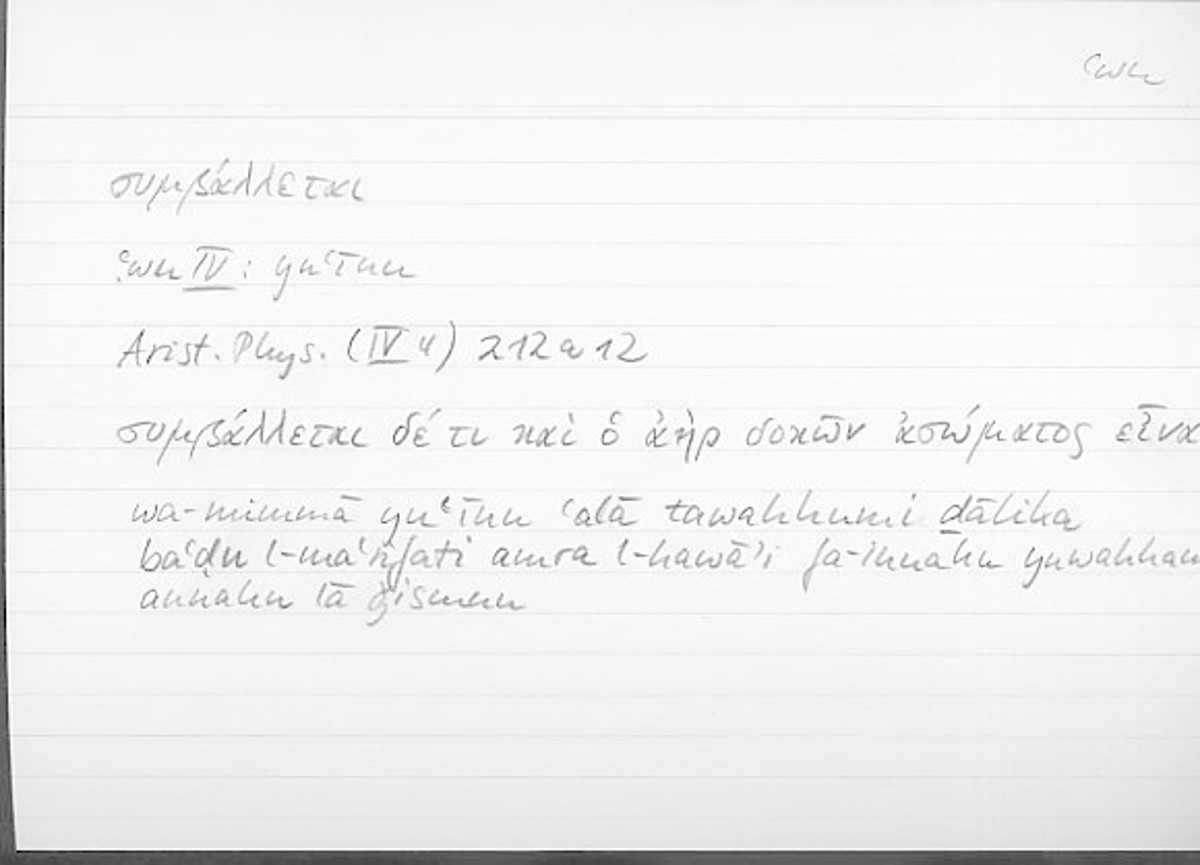 ʿwn
συμβάλλεται
ʿwn IV: yuʿīnu
Arist. Phys. (IV 4) 212 a 12
συμβάλλεται δέ τι καὶ ὁ ἀὴρ δοκῶν ἀσώματος εἶνα
wa-mimmā yuʿīnu ʿalā tawahhumi ḏālika
baʿḍu l-maʿrifati amra l-hawāʾi fa-innahu yuwahham
annahu lā ǧismun